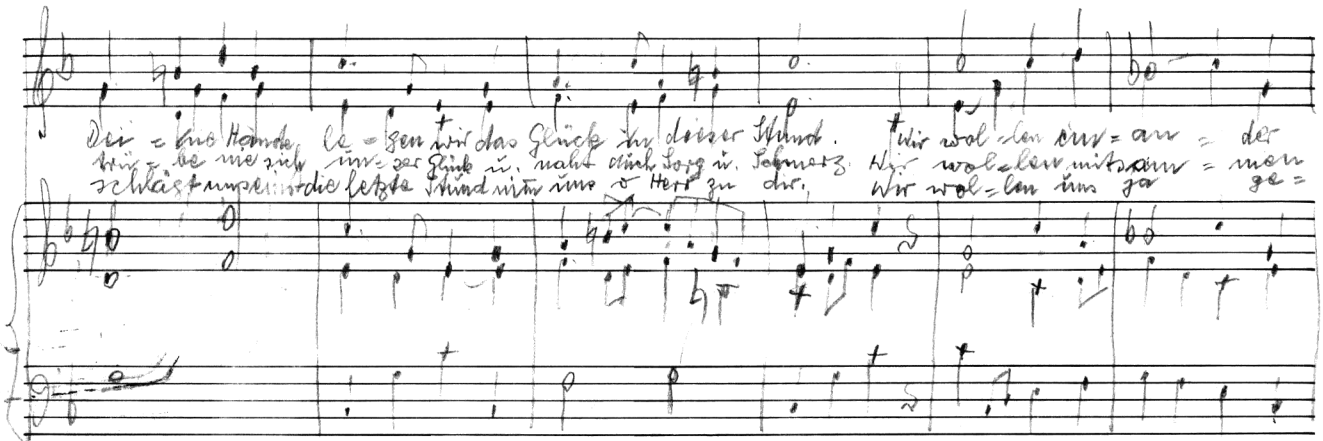 Dei = ne Hände le = gen wir das Glück in dieser Stund. Wir wol = len ein = an = der
trü = be nie sich un = ser Glück u. naht auch Sorg u. Schmerz. Wir wol = len mitsam = men
schlägt uns einst die letzte Stund nim uns o Herr zu dir. Wir wol = len uns ja ge =